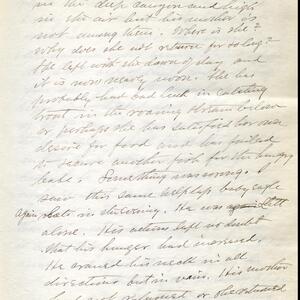 in the deep canyon and high
in the air but his mother is
not among them. Where is she?
Why does she not return for so long?
She left with the dawn of day and
it is now nearly noon. She has
probably had bad luck in catching
trout in the roaring stream below
or perhaps she has satisfied her own
desire for food and has failed
to secure another fish for the hungry
eaglet. Something was wrong. I
saw this same helpless baby eagle
Again, late in the evening. He was still
alone. His actions left no doubt
that his hunger had increased.
He craned his neck in all
directions but in vain. His mother
had not returned or she returned